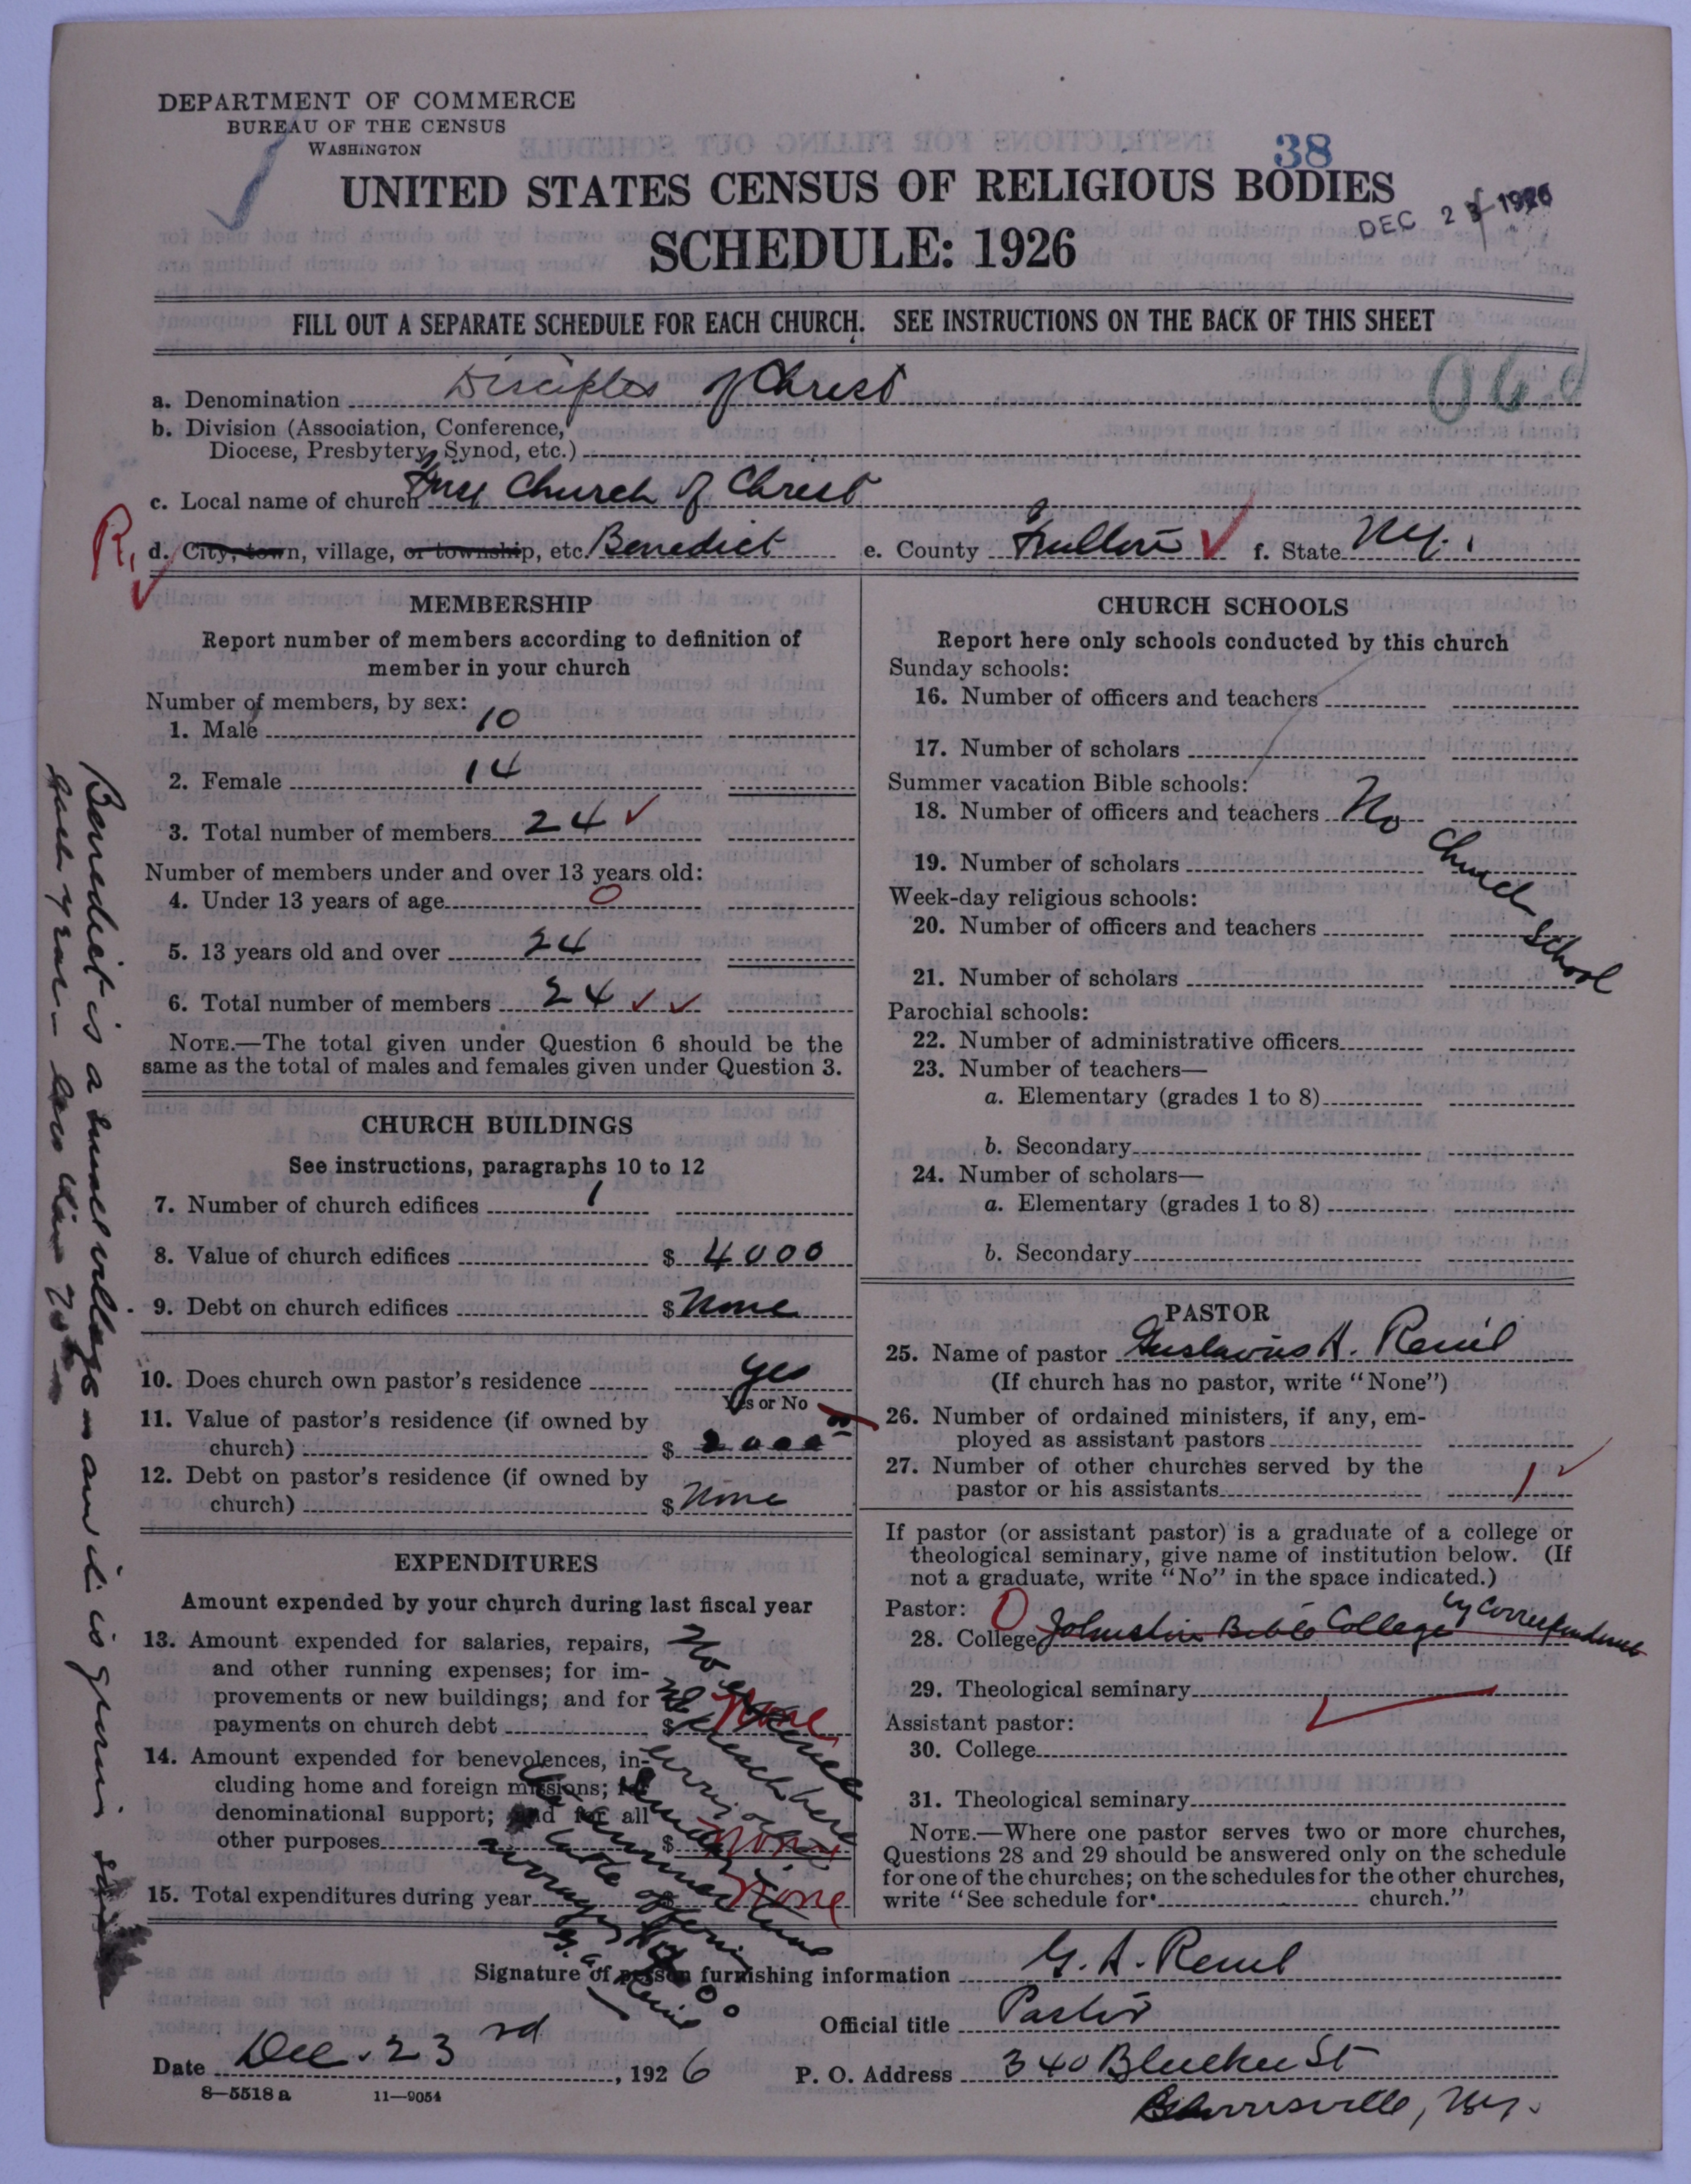 DEPARTMENT OF COMMERCE
BUREAU OF THE CENSUS
WASHINGTON
38
UNITED STATES CENSUS OF RELIGIOUS BODIES
DEC 2 1926
SCHEDULE: 1926
FILL OUT A SEPARATE SCHEDULE FOR EACH CHURCH. SEE INSTRUCTIONS ON THE BACK OF THIS SHEET
a. Denomination Disciples of Christ
b. Division (Association, Conference,
Diocese, Presbytery, Synod, etc.)
c. Local name of church Church of Christ
R. d. City, town, village, or township, etc. Benedict e. County Fulton f. State N.Y.
MEMBERSHIP
Report number of members according to definition of
member in your church
Number of members, by sex:
1. Male 10
2. Female 14
3. Total number of members 24
Number of members under and over 13 years old:
4. Under 13 years of age 0
5. 13 years old and over 24
6. Total number of members 24
NOTE.—The total given under Question 6 should be the
same as the total of males and females given under Question 3.
CHURCH BUILDINGS
See instructions, paragraphs 10 to 12
7. Number of church edifices 1
8. Value of church edifices $ 4000
9. Debt on church edifices $ None
10. Does church own pastor's residence yes
Yes or No
11. Value of pastor's residence (if owned by
church) $ 2000
12. Debt on pastor's residence (if owned by
church) $ None
EXPENDITURES
Amount expended by your church during last fiscal year
13. Amount expended for salaries, repairs,
and other running expenses; for im-
provements or new buildings; and for
payments on church debt $ None
14. Amount expended for benevolences, in-
cluding home and foreign missions; for
denominational support; and for all
other purposes $ None
15. Total expenditures during year None
No expense
preach here
every other
Sunday in
summer time
loose offering
average
CHURCH SCHOOLS
Report here only schools conducted by this church
Sunday schools:
16. Number of officers and teachers
17. Number of scholars
Summer vacation Bible schools:
18. Number of officers and teachers No Church School
19. Number of scholars
Week-day religious schools:
20. Number of officers and teachers
21. Number of scholars
Parochial schools:
22. Number of administrative officers
23. Number of teachers—
a. Elementary (grades 1 to 8)
b. Secondary
24. Number of scholars—
a. Elementary (grades 1 to 8)
b. Secondary
PASTOR
25. Name of pastor Gustavus A.
(If church has no pastor, write "None")
26. Number of ordained ministers, if any, em-
ployed as assistant pastors
27. Number of other churches served by the
pastor or his assistants 1
If pastor (or assistant pastor) is a graduate of a college or
theological seminary, give name of institution below. (If
not a graduate, write "No" in the space indicated.)
Pastor: 0
28. College Johnston Bible College by Correspondence
29. Theological seminary
Assistant pastor:
30. College
31. Theological seminary
NOTE.—Where one pastor serves two or more churches,
Questions 28 and 29 should be answered only on the schedule
for one of the churches; on the schedules for the other churches,
write "See schedule for church."
Signature of person furnishing information G. A.
Official title Pastor
Date Dec. 23rd, 1926 P. O. Address 340 Bleecker St
N.Y.
8—5518 a 11—9054
Benedict is a small village and it is
each year — less than